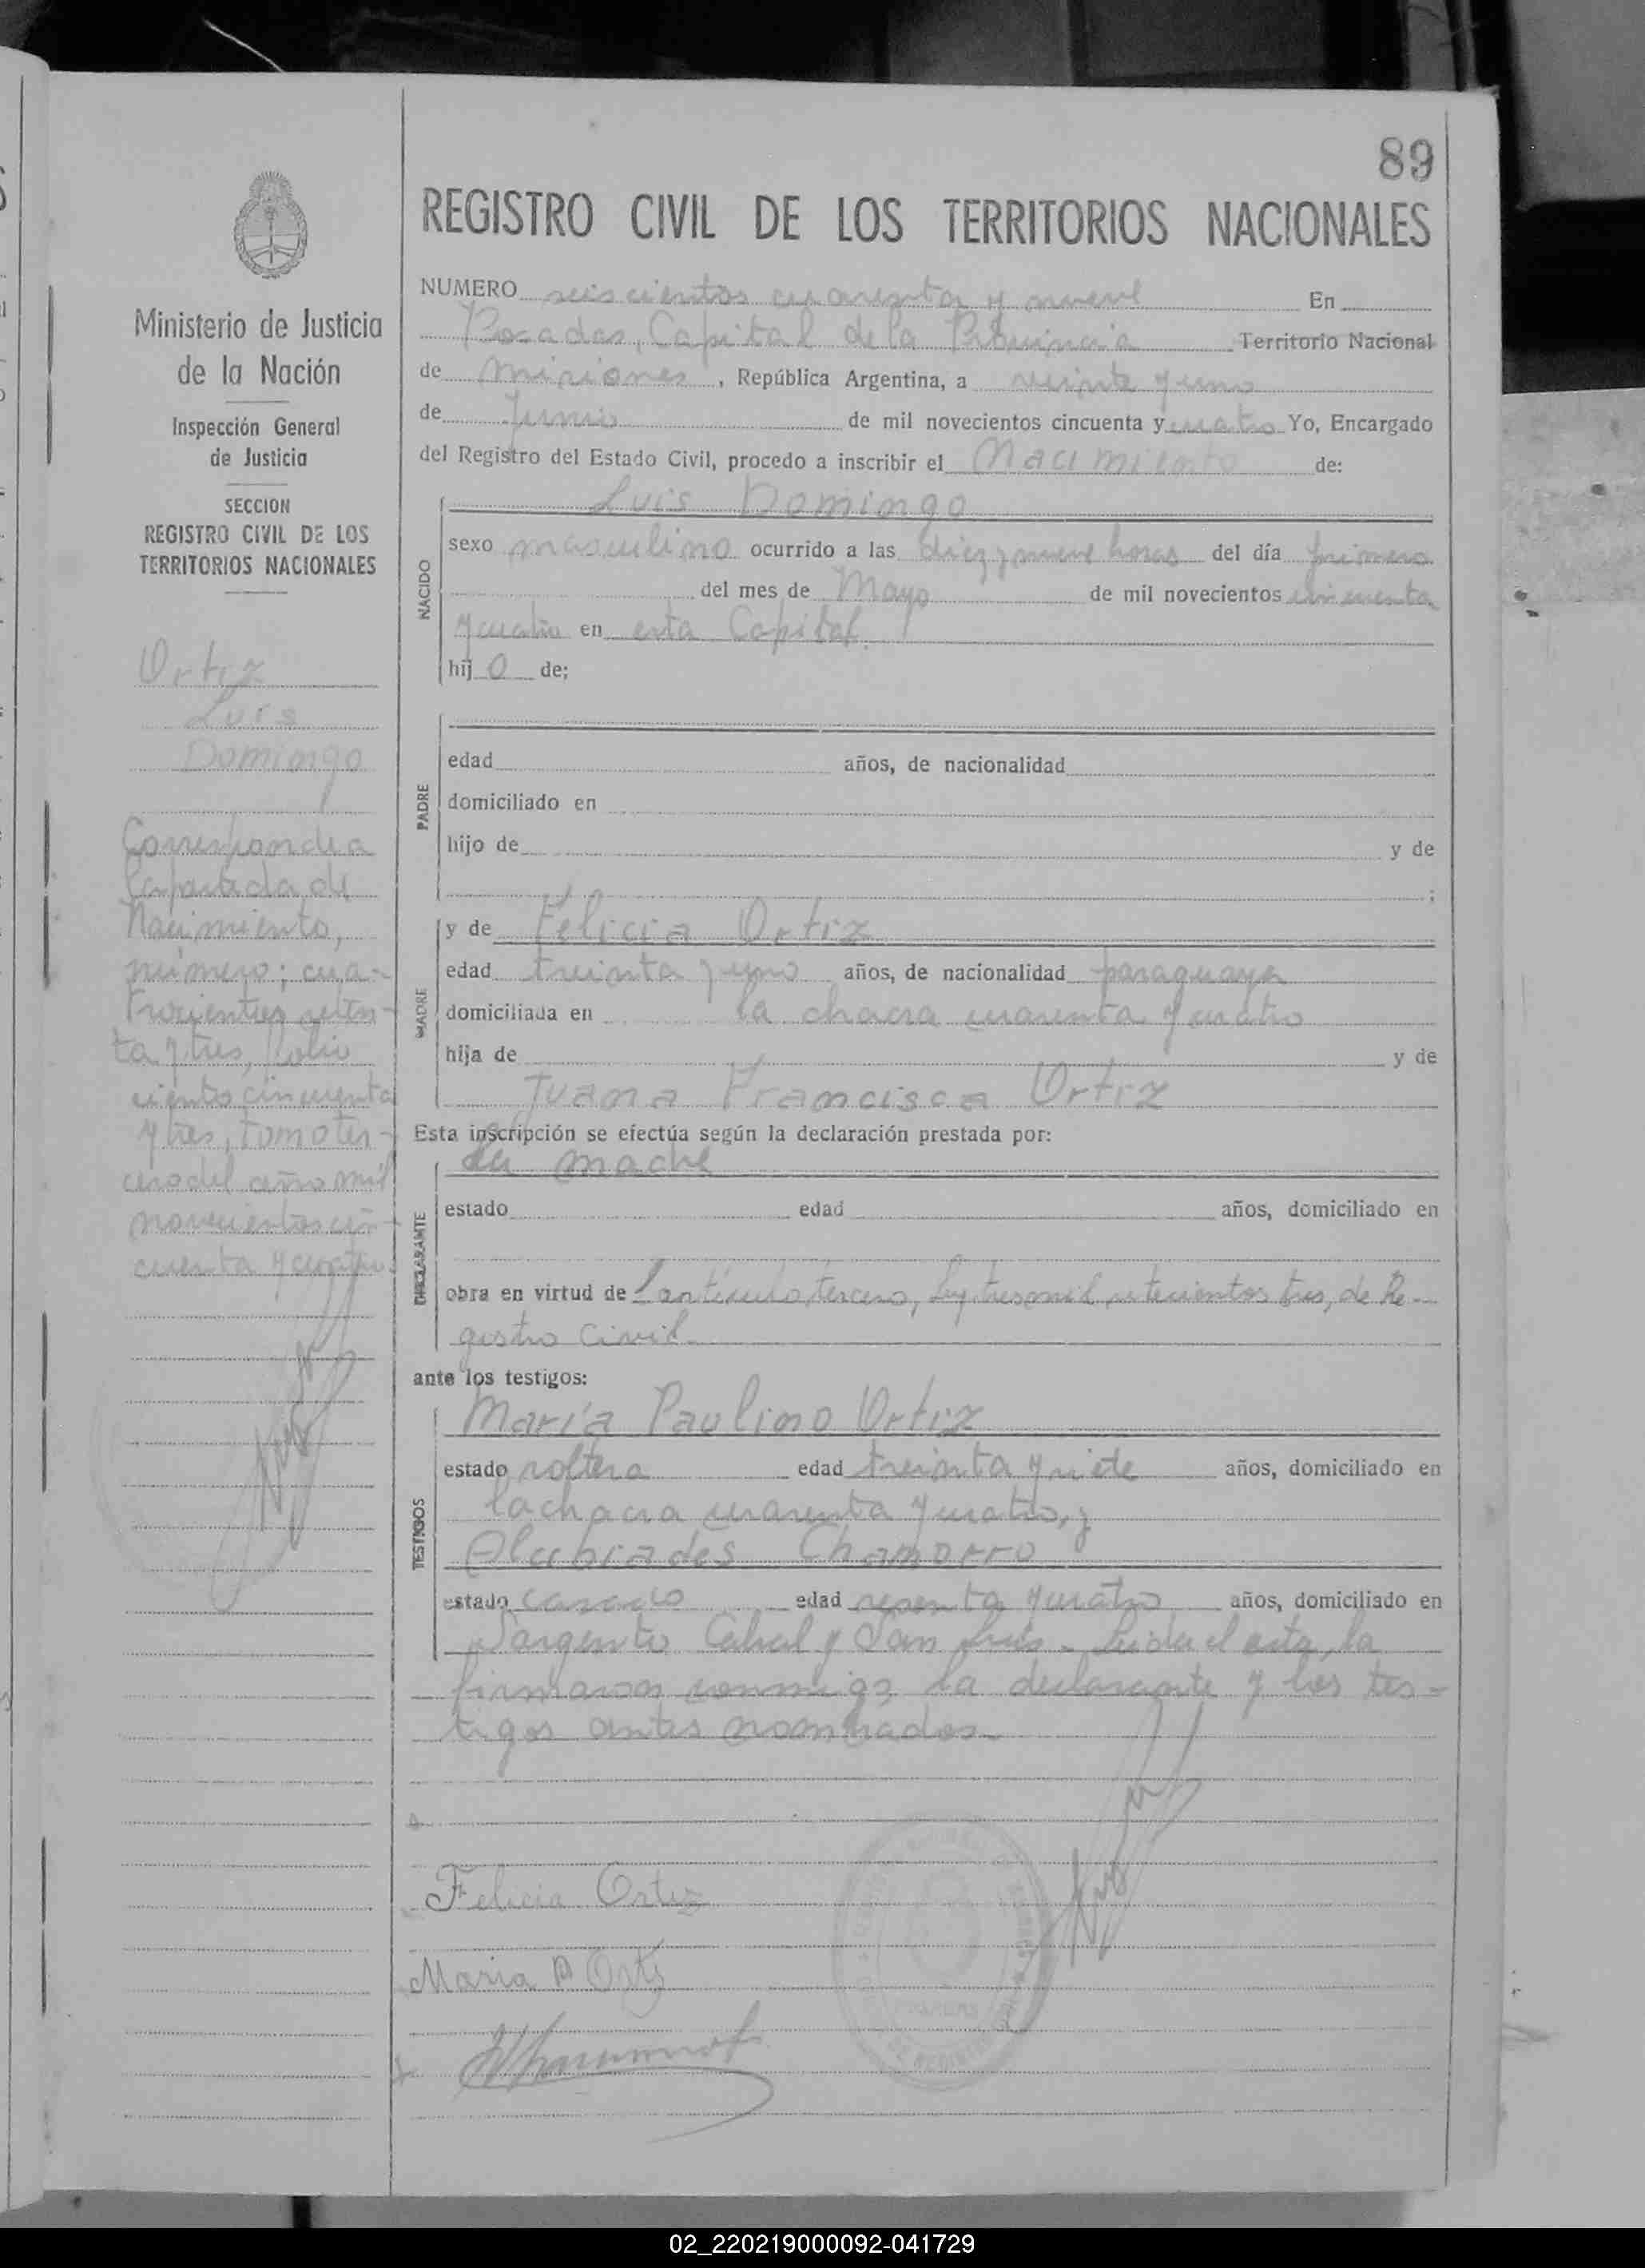 89
REGISTRO CIVIL DE LOS TERRITORIOS NACIONALES
Ministerio de Justicia
de la Nación
Inspección General
de Justicia
SECCION
REGISTRO CIVIL DE LOS
TERRITORIOS NACIONALES
Ortiz
Luis
Domingo
Corresponde a
la partida de
Nacimiento,
número; cua-
trocientos seten-
ta y tres, folio
ciento cincuenta
y tres, tomo ter-
cero del año mil
novecientos cin-
cuenta y cuatro
NUMERO seiscientos cuarenta y nueve En
Posadas, Capital de la Provincia Territorio Nacional
de Misiones, República Argentina, a veinte y uno
de Junio de mil novecientos cincuenta y cuatro Yo, Encargado
del Registro del Estado Civil, procedo a inscribir el Nacimiento de:
NACIDO
Luis Domingo
sexo masculino ocurrido a las diez y nueve horas del día primero
del mes de Mayo de mil novecientos cincuenta
y cuatro en esta Capital.
hij o de;
PADRE
edad años, de nacionalidad
domiciliado en
hijo de y de
;
MADRE
y de Felicia Ortiz
edad treinta y uno años, de nacionalidad paraguaya
domiciliada en la chacra cuarenta y cuatro
hija de y de
Juana Francisca Ortiz
Esta inscripción se efectúa según la declaración prestada por:
DECLARANTE
La madre
estado edad años, domiciliado en
obra en virtud de l artículo tercero, Ley tres mil setecientos tres, de Re-
gistro Civil.
ante los testigos:
TESTIGOS
María Paulino Ortiz
estado soltera edad treinta y siete años, domiciliado en
la chacra cuarenta y cuatro, y
Alcibiades Chamorro
estado casado edad sesenta y cuatro años, domiciliado en
Sargento Cabral y San Luis. Leida el acta, la
firmaron conmigo la declarante y los tes-
tigos antes nombrados.
Felicia Ortiz
Maria P Ortiz
02_220219000092-041729